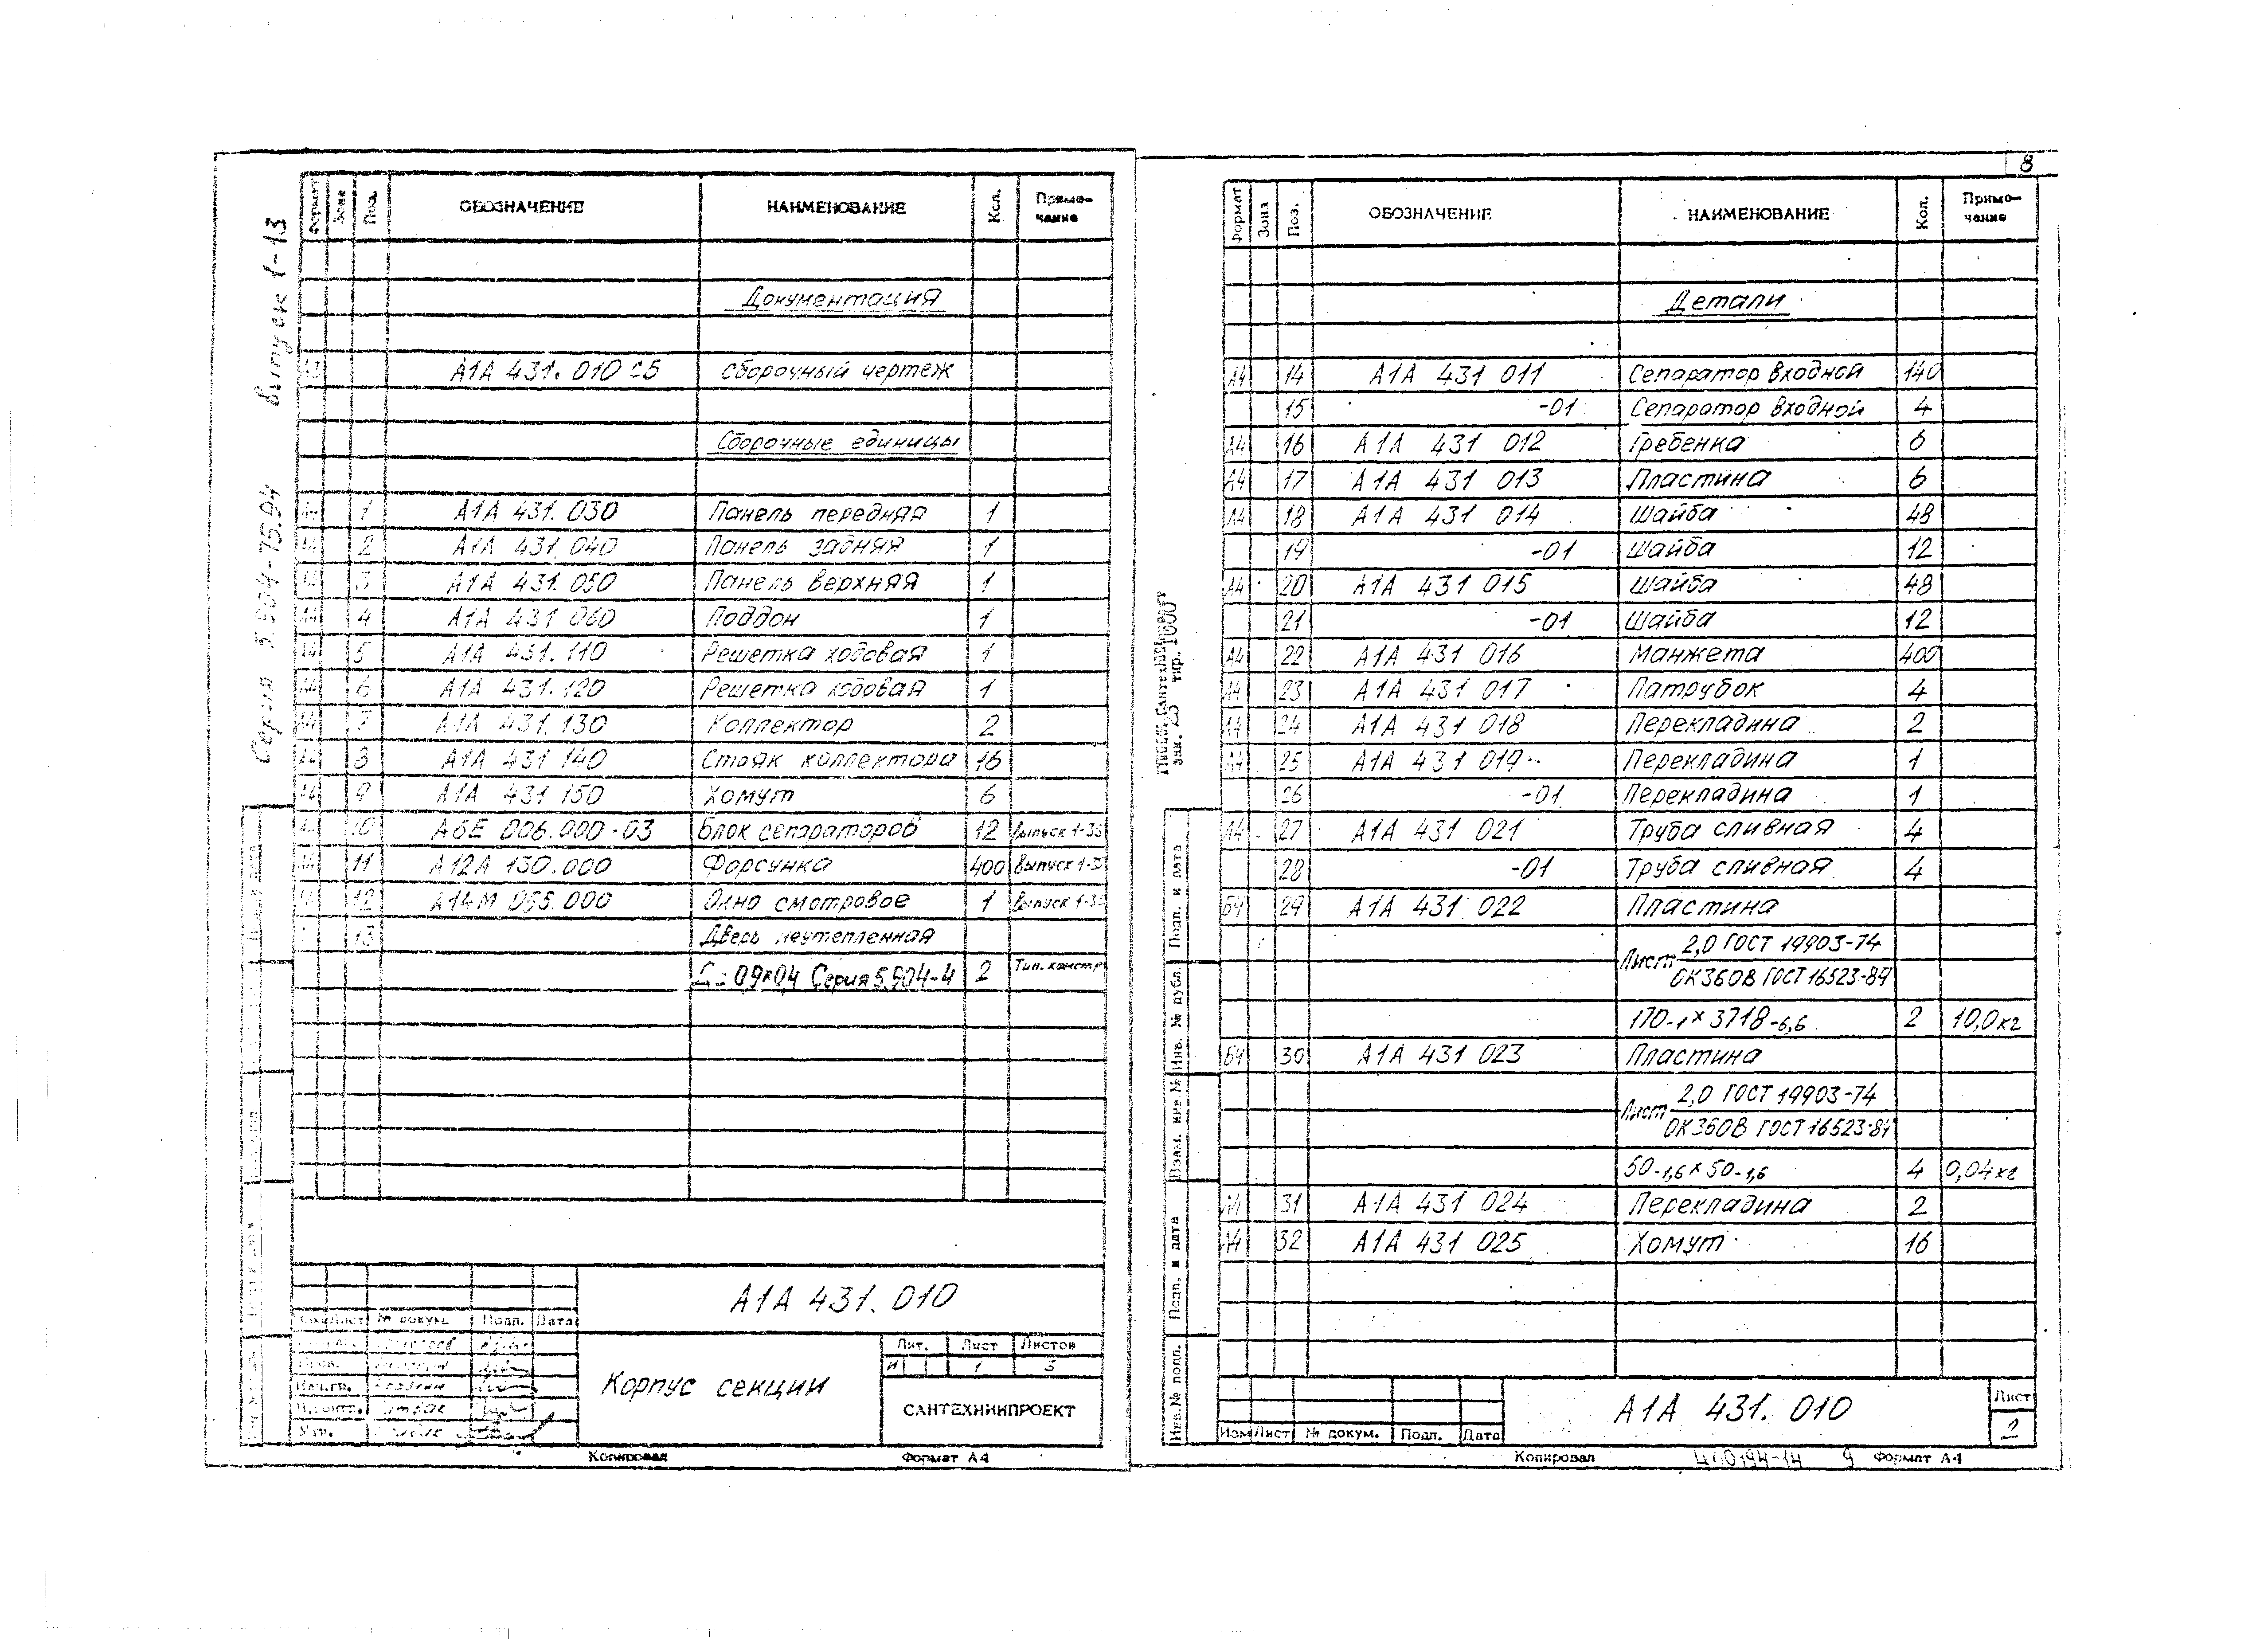 Серия 5.904-75.94 Выпуск 1-13
Формат Зона Поз. ОБОЗНАЧЕНИЕ НАИМЕНОВАНИЕ Кол. Примечание
Документация
А1А 431. 010 СБ Сборочный чертеж
Сборочные единицы
1 А1А 431. 030 Панель передняя 1
2 А1А 431. 040 Панель задняя 1
3 А1А 431. 050 Панель верхняя 1
4 А1А 431 060 Поддон 1
5 А1А 431. 110 Решетка ходовая 1
6 А1А 431. 120 Решетка ходовая 1
7 А1А 431. 130 Коллектор 2
8 А1А 431 140 Стояк коллектора 16
9 А1А 431 150 Хомут 6
10 А6Е 006.000-03 Блок сепараторов 12
11 А12А 130.000 Форсунка 400
12 А14М 055.000 Окно смотровое 1
13 Дверь неутепленная
0,9х0,4 Серия 5.904-4 2 Тип. констр
А1А 431. 010
Лист № докум. Подп. Дата
Корпус секции
Лит. Лист Листов
И 1 3
САНТЕХНИИПРОЕКТ
Копировал Формат А4
8
Формат Зона Поз. ОБОЗНАЧЕНИЕ НАИМЕНОВАНИЕ Кол. Примечание
Детали
А4 14 А1А 431 011 Сепаратор входной 140
15 -01 Сепаратор входной 4
А4 16 А1А 431 012 Гребенка 6
А4 17 А1А 431 013 Пластина 6
А4 18 А1А 431 014 Шайба 48
19 -01 Шайба 12
А4 20 А1А 431 015 Шайба 48
21 -01 Шайба 12
А4 22 А1А 431 016 Манжета 400
А4 23 А1А 431 017 Патрубок 4
А4 24 А1А 431 018 Перекладина 2
А4 25 А1А 431 019 Перекладина 1
26 -01 Перекладина 1
А4 27 А1А 431 021 Труба сливная 4
28 -01 Труба сливная 4
БЧ 29 А1А 431 022 Пластина
Лист 2,0 ГОСТ 19903-74
ОК360В ГОСТ 16523-84
170-1 х 3718-6,6 2 10,0кг
БЧ 30 А1А 431 023 Пластина
Лист 2,0 ГОСТ 19903-74
ОК360В ГОСТ 16523-84
50-1,6 х 50-1,6 4 0,04кг
А4 31 А1А 431 024 Перекладина 2
А4 32 А1А 431 025 Хомут 16
Инв.№ подл. Подп. и дата Взам. инв.№ Инв. № дубл. Подп. и дата
А1А 431. 010
Лист
2
Изм Лист № докум. Подп. Дата
Копировал 9 Формат А4